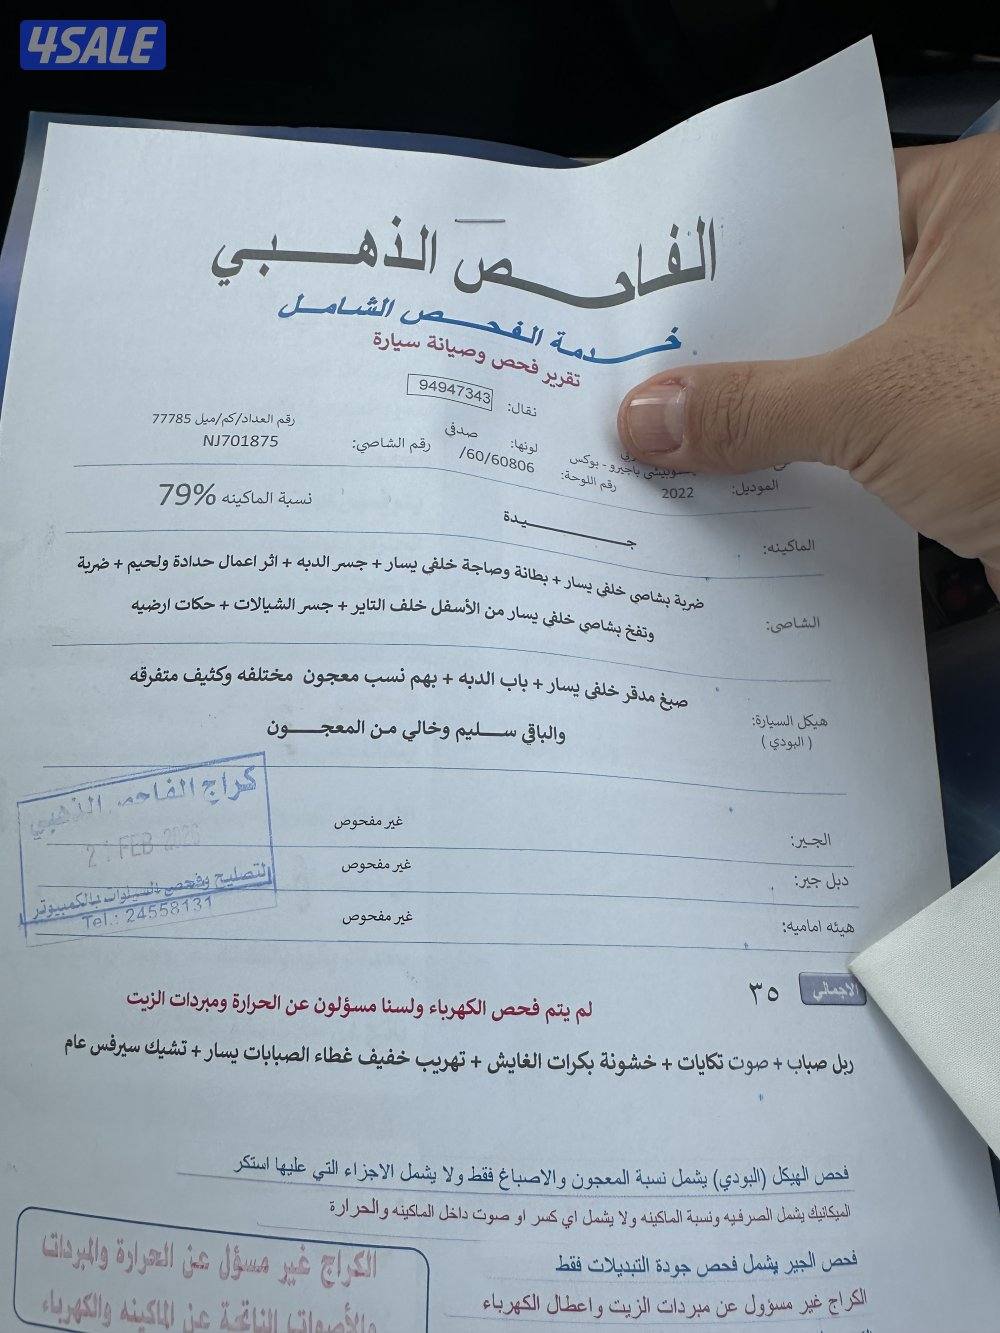 4SALE
الفاحص الذهبي
خدمة الفحص الشامل
تقرير فحص وصيانة سيارة
نقال: 94947343
رقم العداد/كم/ميل 77785
لونها: صدفي
رقم الشاصي: NJ701875
باجيرو - بوكس
رقم اللوحة: 60/60806/
الموديل: 2022
نسبة الماكينه 79%
الماكينه: جيدة
الشاصي: ضربة بشاصي خلفي يسار + بطانة وصاجة خلفي يسار + جسر الدبه + اثر اعمال حدادة ولحيم + ضربة
وتفخ بشاصي خلفي يسار من الأسفل خلف التاير + جسر الشيالات + حكات ارضيه
هيكل السيارة: صبغ مدقر خلفي يسار + باب الدبه + بهم نسب معجون مختلفه وكثيف متفرقه
( البودي ) والباقي سليم وخالي من المعجون
كراج الفاحص الذهبي
FEB
لتصليح وفحص السيارات بالكمبيوتر
Tel.: 24558131
الجير: غير مفحوص
دبل جير: غير مفحوص
هيئه اماميه: غير مفحوص
الاجمالي ٣٥
لم يتم فحص الكهرباء ولسنا مسؤلون عن الحرارة ومبردات الزيت
ربل صباب + صوت تكايات + خشونة بكرات الغايش + تهريب خفيف غطاء الصبابات يسار + تشيك سيرفس عام
فحص الهيكل (البودي) يشمل نسبة المعجون والاصباغ فقط ولا يشمل الاجزاء التي عليها استكر
الميكانيك يشمل الصرفيه ونسبة الماكينه ولا يشمل اي كسر او صوت داخل الماكينه والحرارة
فحص الجير يشمل فحص جودة التبديلات فقط
الكراج غير مسؤول عن مبردات الزيت واعطال الكهرباء
الكراج غير مسؤل عن الحرارة والمبردات
والأصوات الناتجة عن الماكينه والكهرباء